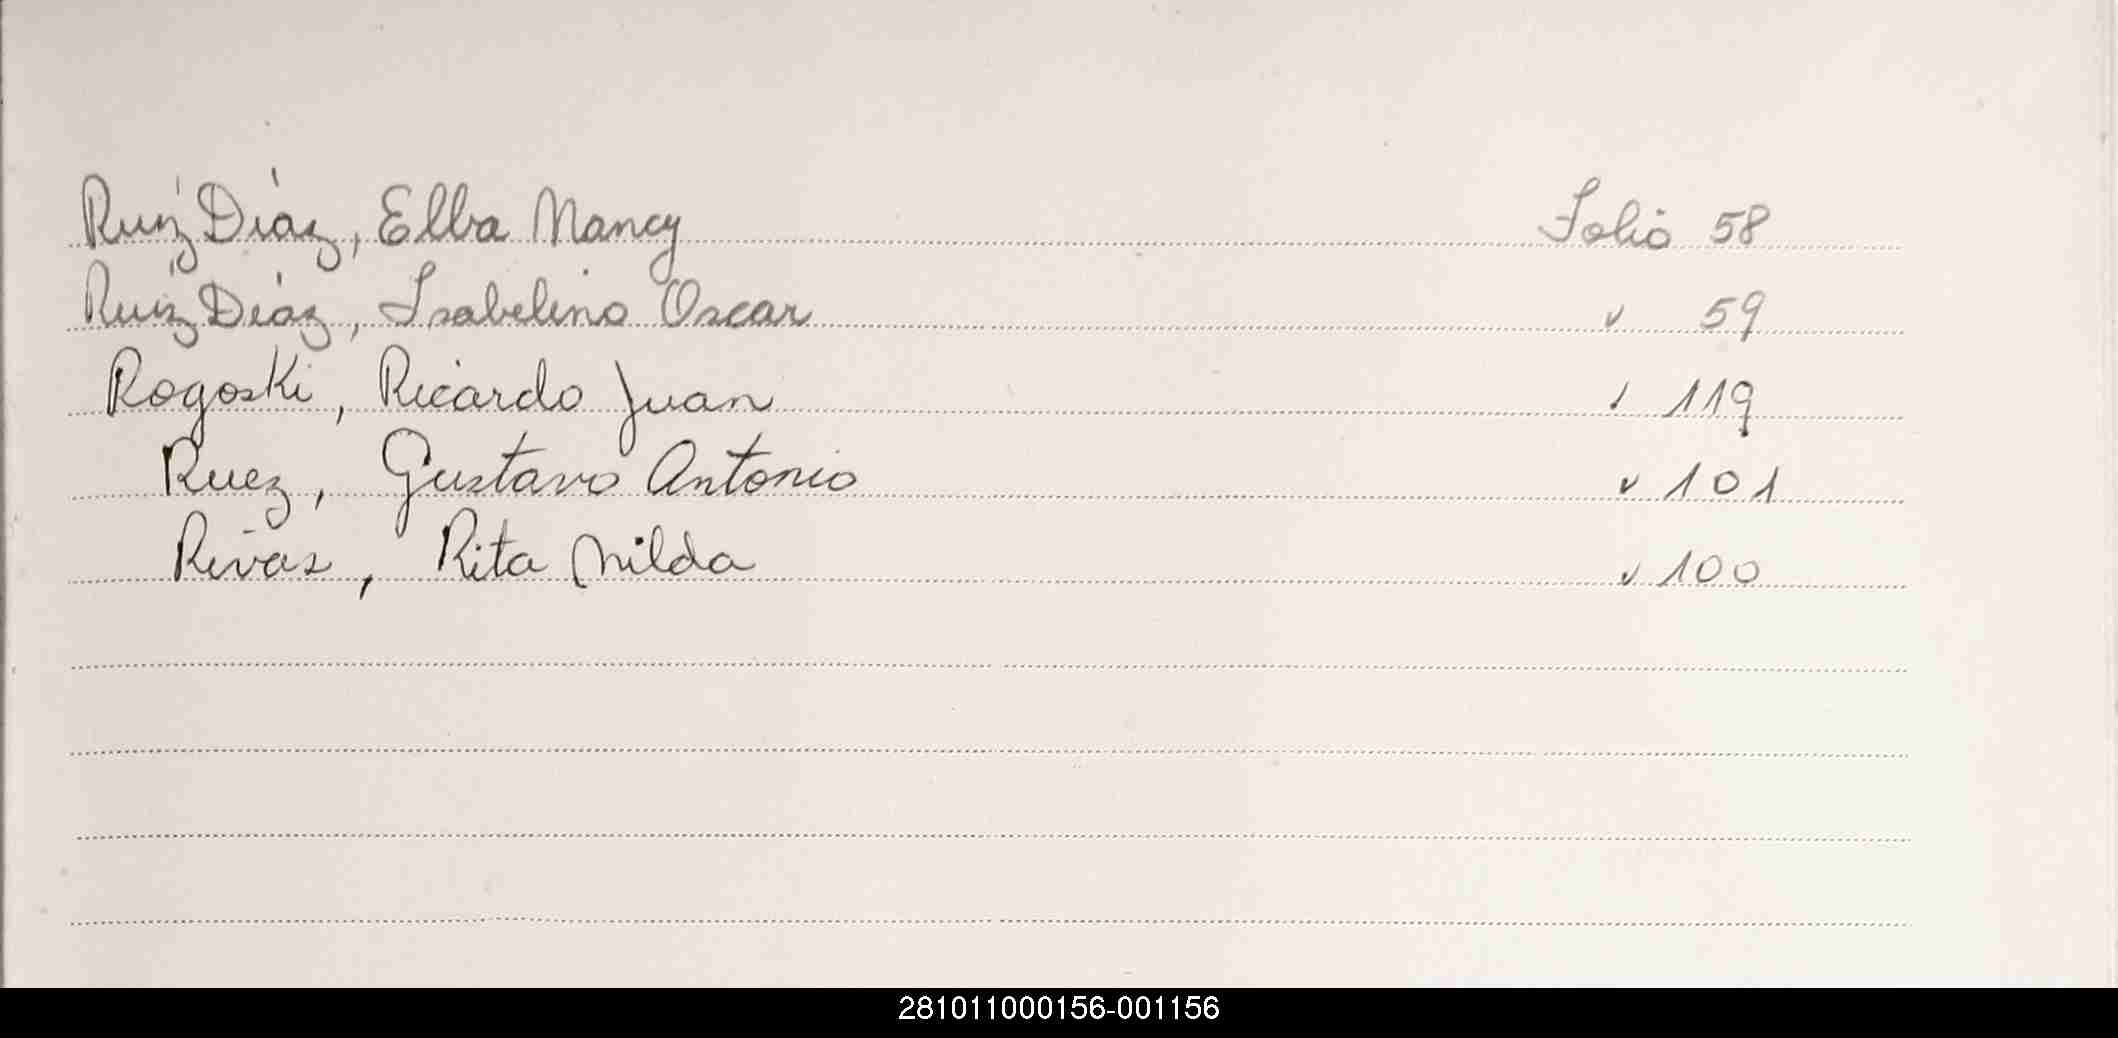 Ruiz Díaz, Elba Nancy Folio 58
Ruiz Díaz, Isabelino Oscar " 59
Rogoski, Ricardo Juan " 119
Ruez, Gustavo Antonio " 101
Rivas, Rita Nilda " 100
281011000156-001156